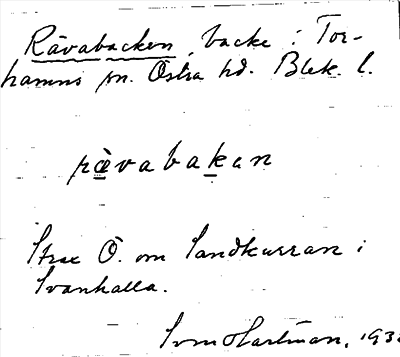 Rävabacken, backe i Tor-
hamns sn. Östra hd. Blek. l.
rävabakan
Strax Ö. om Sandkurran i
Svanhalla.
Sven Hartman, 193